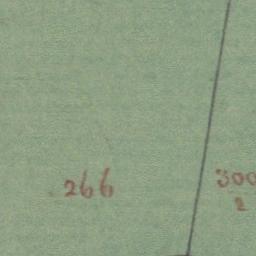 266
300
2